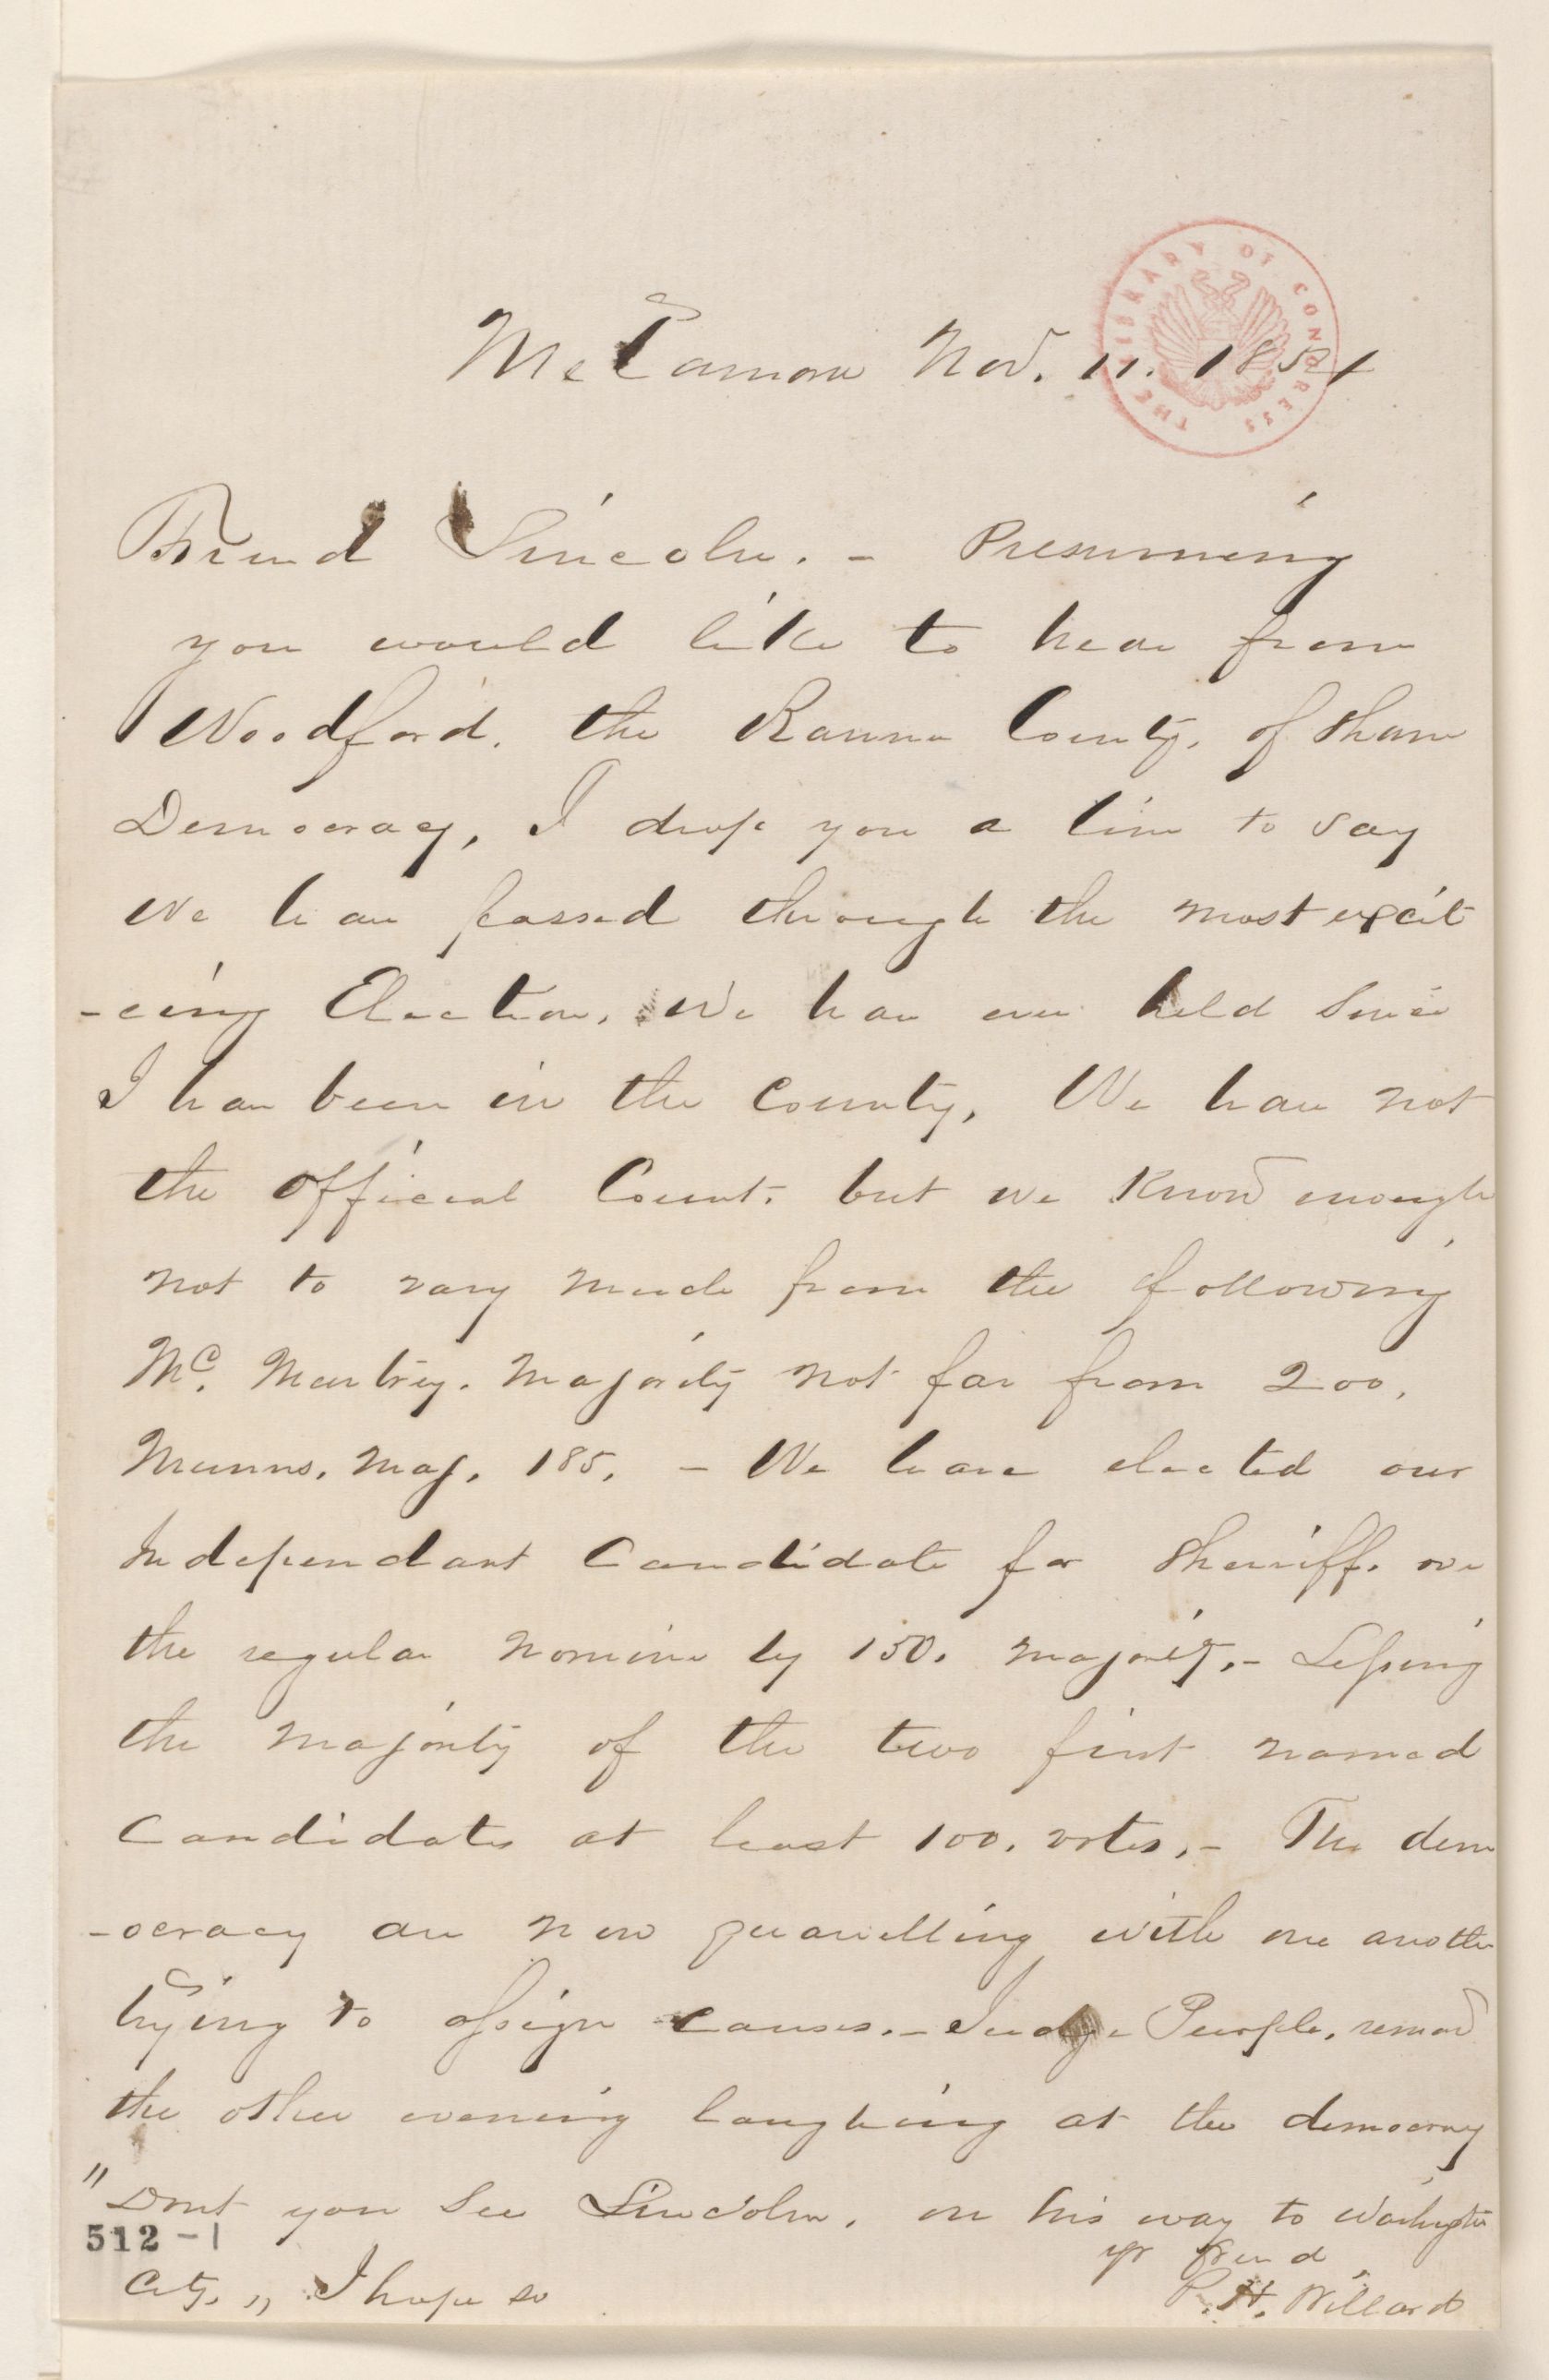 Metamora Nov. 11. 1854
THE LIBRARY OF CONGRESS
Friend Lincoln. - Presuming
you would like to hear from
Woodford. the Banner County, of sham
Democracy, I drop you a line to say
We have passed through the most excit
-ing Election, We have ever held since
I have been in the County, We have not
the official Count. but we know enough
not to vary much from the following
Mc. Murtry. majority not far from 200,
Munns. maj. 185. - We have elected our
Independant Candidate for Sherriff. over
the regular nominee by 150. majority. - Lessing
the majority of the two first named
Candidates at least 100. votes. - The dem
-ocracy are now quarrelling with one another
trying to assign causes. - Judge Purple,
the other evening laughing at the democracy
"Dont you see Lincoln. on his way to Washington
512-1
City." I hope so
yr friend
P. H. Willard